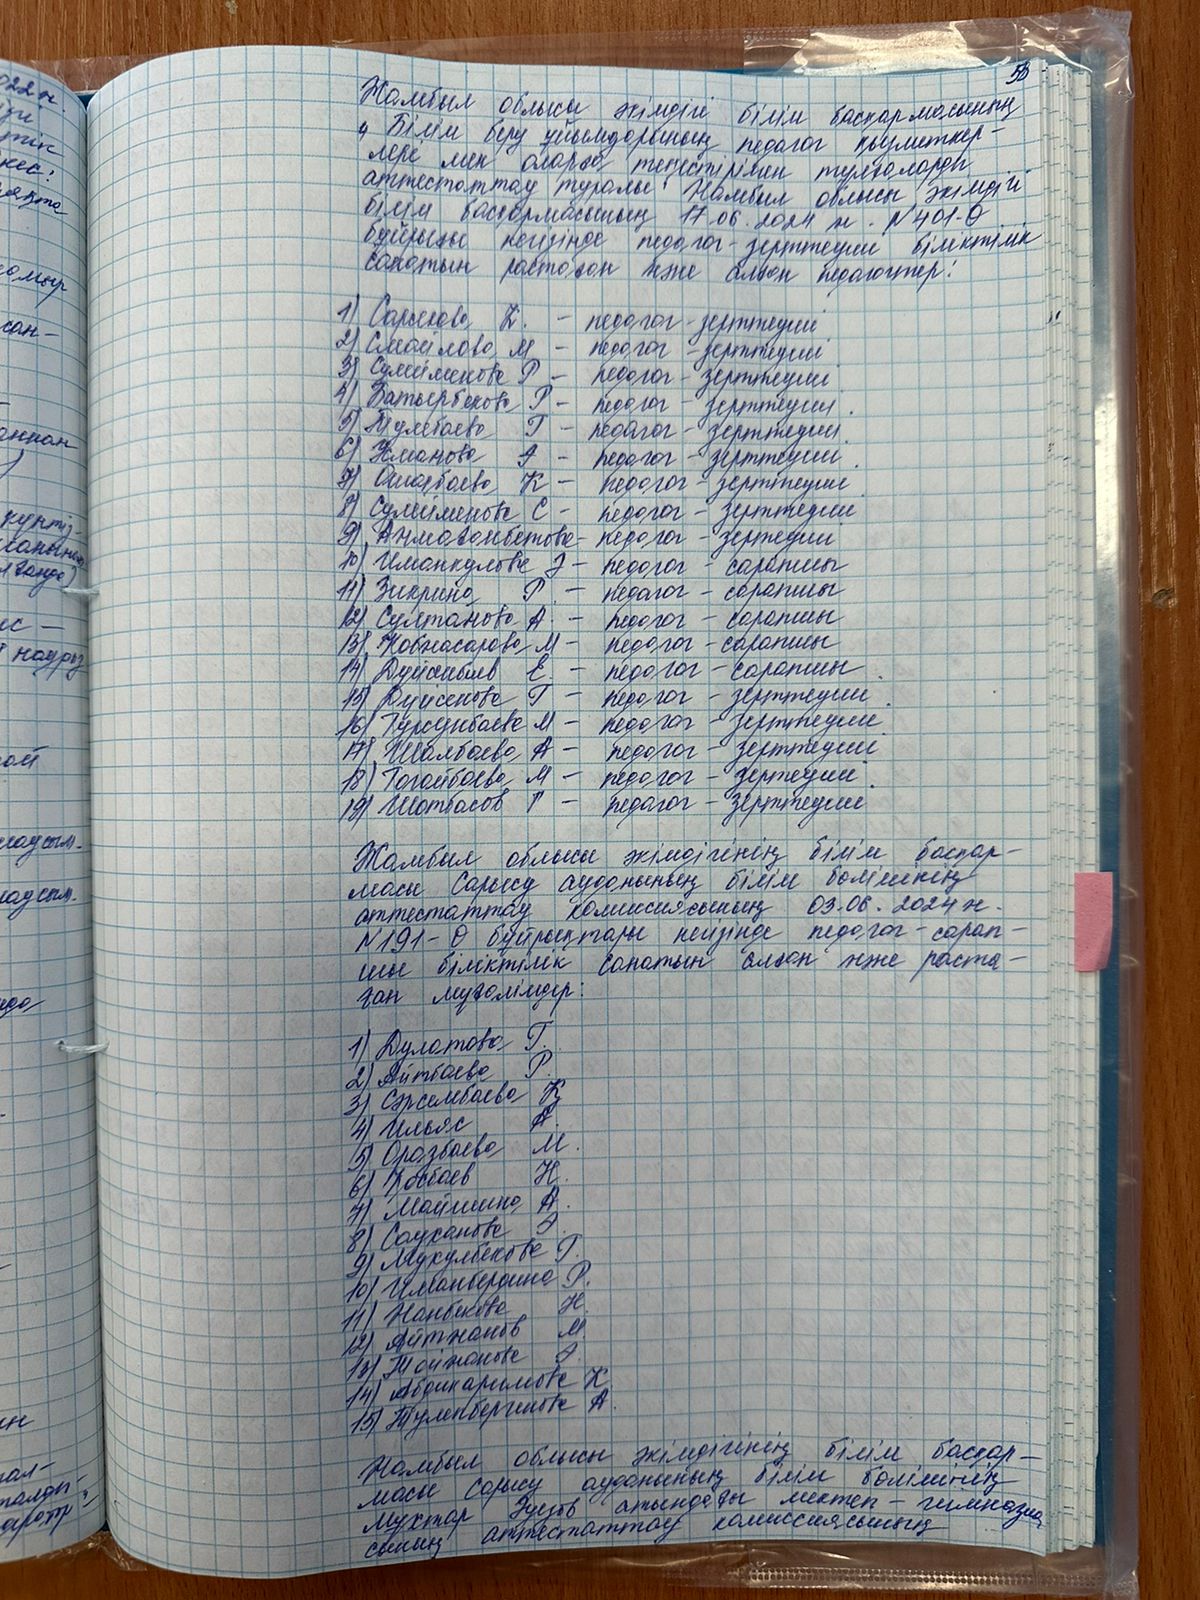 022 ж.
50
Жамбыл облысы әкімдігі білім басқармасының
"Білім беру ұйымдарының педагог қызметкер-
лері мен оларға теңестірілген тұлғаларды
аттестаттау туралы" Жамбыл облысы әкімдігі
білім басқармасының 17.06.2024 ж. №401-Ө
бұйрығы негізінде педагог-зерттеуші біліктілік
санатын растаған және алған педагогтер:
1) Сарыкова К. – педагог-зерттеуші
2) Смаилова М – педагог-зерттеуші
3) Сулейменова Р – педагог-зерттеуші
4) Батырбекова Р – педагог-зерттеуші.
5) Тулебаева Г – педагог-зерттеуші.
6) Иманова А – педагог-зерттеуші.
7) Ошакбаева К – педагог-зерттеуші
8) Сулейменова С – педагог-зерттеуші
9) Анмағамбетова – педагог-зерттеуші
10) Иманкулова Э – педагог-сарапшы
11) Зикрина Р. – педагог-сарапшы
12) Султанова А. – педагог-сарапшы
13) Кобнасарова М – педагог-сарапшы
14) Дүйсебаев Е. – педагог-сарапшы
15) Дуйсенова Г – педагог-зерттеуші
16) Турсунбаева М – педагог-зерттеуші
17) Шалбаева А – педагог-зерттеуші
18) Тоғайбаева М – педагог-зерттеуші
19) Шотбасов Г – педагог-зерттеуші
Жамбыл облысы әкімдігінің білім басқар-
масы Сарысу ауданының білім бөлімінің
аттестаттау комиссиясының 03.06.2024ж.
№191-Ө бұйрықтары негізінде педагог-сарап-
шы біліктілік санатын алған және раста-
ған мұғалімдер:
1) Дулатова Г.
2) Айтбаева Р.
3) Сәрсембаева Қ
4) Ильяс А.
5) Оразбаева М.
6) Көсбаев Н.
7) Майшина А.
8) Сауханова Э.
9) Мукулбекова Г.
10) Иманбердина Р.
11) Нанбекова Н.
12) Айтжанов М.
13) Тойжанова Э.
14) Абдикаримова К
15) Тулепбергенова А.
Жамбыл облысы әкімдігінің білім басқар-
масы Сарысу ауданының білім бөлімінің
Мухтар Әуезов атындағы мектеп-гимназия
сының аттестаттау комиссиясының